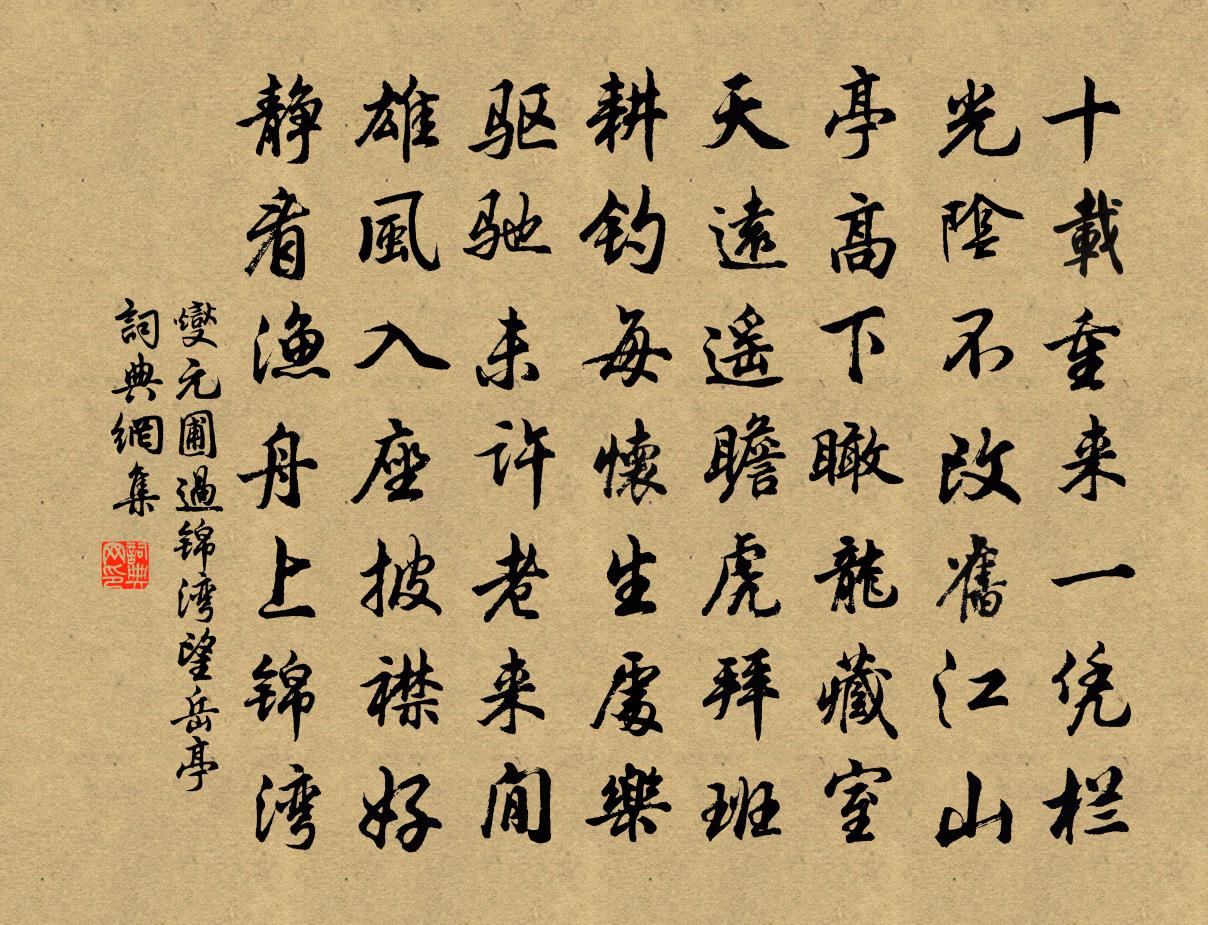 十載重来一凭栏
光陰不改舊江山
亭高下瞰龍藏室
天遠遥瞻虎拜班
耕钓每懷生處樂
驱驰未许老来閒
雄風入座披襟好
静看渔舟上锦湾
燮元圃過锦湾望岳亭
詞典網集
詞典網印